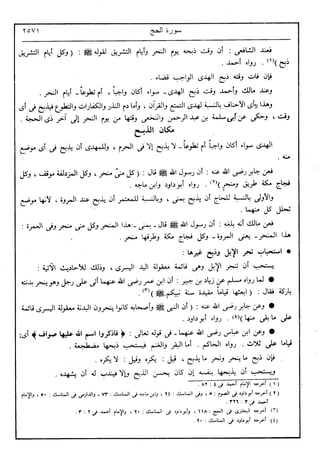 سورة الحج ٢٥٧١
فعند الشافعي : أن وقت ذبحه يوم النحر وأيام التشريق لقوله ﷺ : ( وكل أيام التشريق
ذبح )(١) . رواه أحمد .
فإن فات وقته ذبح الهدي الواجب قضاء .
وعند مالك وأحمد وقت ذبح الهدي - سواء أكان واجباً ، أم تطوعاً - أيام النحر .
وهذا رأي الأحناف بالنسبة لهدي التمتع والقران ، وأما دم النذر والكفارات والتطوع فيذبح في أي
وقت ، وحكى عن أبي سلمة بن عبد الرحمن والنخعي وقتها من يوم النحر إلى آخر ذي الحجة .
مكان الذبح
الهدي سواء أكان واجباً أم تطوعاً - لا يذبح إلا في الحرم ، وللمهدي أن يذبح في أي موضع
منه .
فعن جابر رضي الله عنه : أن رسول الله ﷺ قال : ( كل منى منحر ، وكل المزدلفة موقف ، وكل
فجاج مكة طريق ومنحر )(٢) . رواه أبو داود وابن ماجه .
والأولى بالنسبة للحاج أن يذبح بمنى ، وبالنسبة للمعتمر أن يذبح عند المروة ، لأنها موضع
تحلل كل منهما .
فعن مالك أنه بلغه : أن رسول الله ﷺ قال - بمنى - : هذا المنحر وكل منى منحر وفي العمرة :
هذا المنحر - يعني المروة - وكل فجاج مكة وطرقها منحر .
● استحباب نحر الإبل وذبح غيرها :
يستحب أن تنحر الإبل وهي قائمة معقولة اليد اليسرى ، وذلك للأحاديث الآتية :
● لما رواه مسلم عن زياد بن جبير : أن ابن عمر رضي الله عنهما أتى على رجل وهو ينحر بدنته
باركة فقال : ( ابعثها قياماً مقيدة سنة نبيكم ﷺ )(٣) .
● وعن جابر رضي الله عنه : ( أن النبي ﷺ وأصحابه كانوا ينحرون البدنة معقولة اليسرى قائمة
على ما بقى منها )(٤) . رواه أبو داود .
● وعن ابن عباس رضي الله عنهما - في قوله تعالى : ﴿ فاذكروا اسم الله عليها صواف ﴾ أي :
قياماً على ثلاث . رواه الحاكم . أما البقر والغنم فيستحب ذبحها مضطجعة .
فإن ذبح ما ينحر ونحر ما يذبح ، قيل : يكره وقيل : لا يكره .
ويستحب أن يذبحها بنفسه إن كان يحسن الذبح وإلا فيندب له أن يشهده .
(١) أخرجه الإمام أحمد في ٤ : ٨٢ .
(٢) أخرجه أبو داود في الصوم : ٥ ، وفي المناسك : ٦٤ ، وابن ماجه في المناسك : ٧٣ ، والدارمي في المناسك : ٥٠ ، والإمام
أحمد في ٣ : ٣٢٦ .
(٣) أخرجه البخاري في الحج : ١١٨ ، وأبو داود في المناسك : ٢٠ ، والإمام أحمد في ٢ : ٣ .
(٤) أخرجه أبو داود في المناسك : ٢٠ .